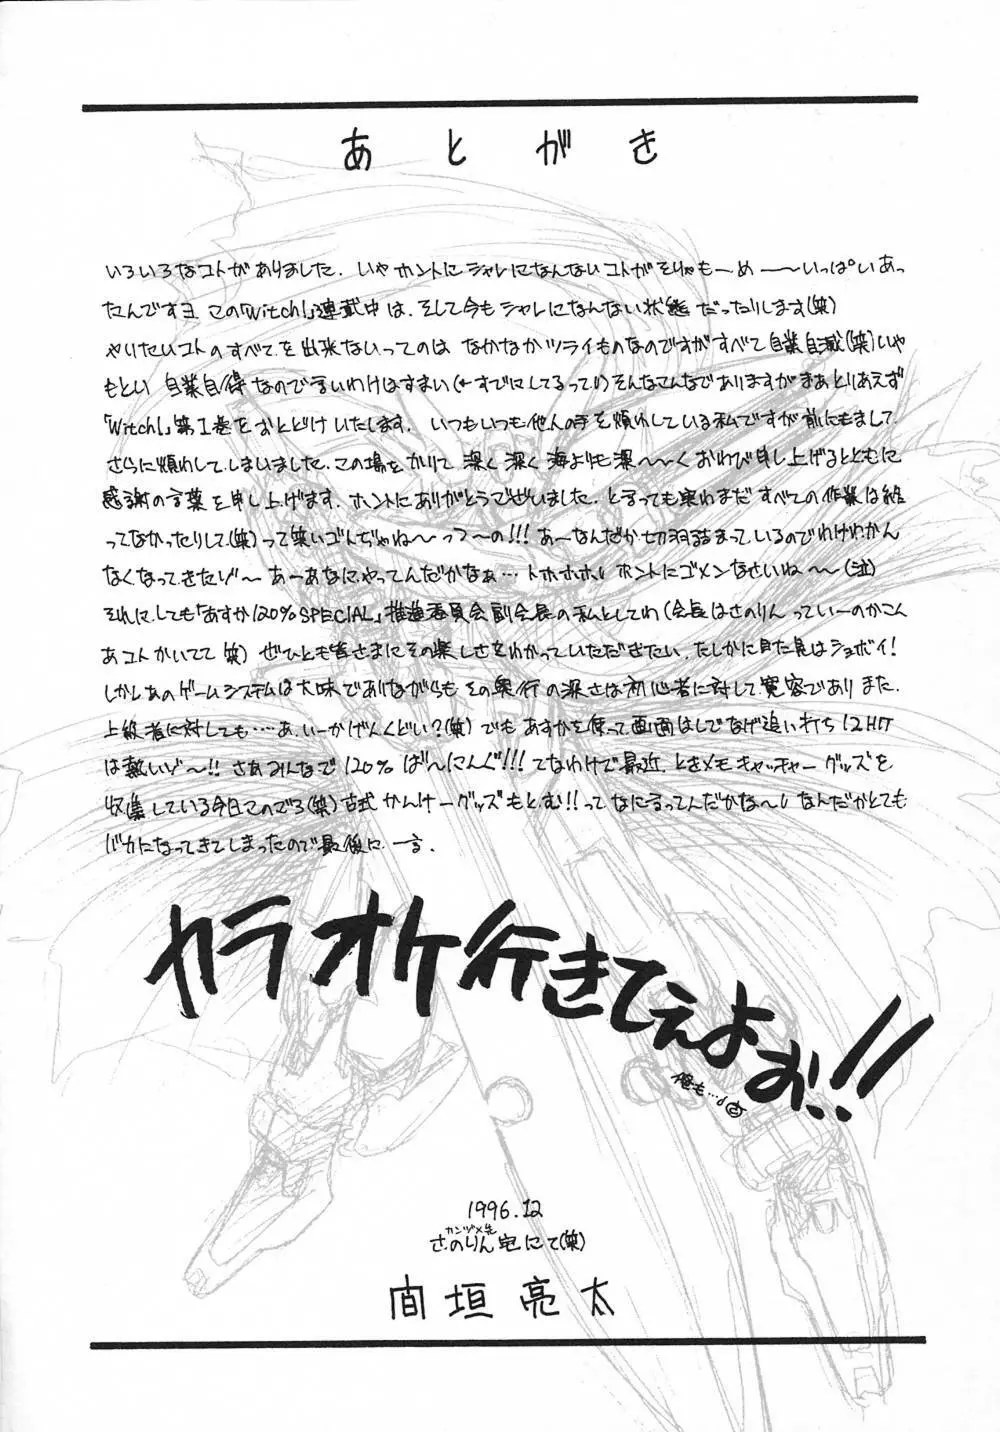 あとがき
いろいろなコトがありました．いやホントにシャレになんないコトがそりゃもーめーーーいっぱいあっ
たんですヨ この「Witch!」連載中は、そして今もシャレになんない状態だったりします(笑)
やりたいコトのすべてを出来ないってのは なかなかツライものなのですがすべて自業自滅(笑)いや
もとい 自業自得なので言いわけはすまい(←すでにしてるって!)そんなこんなでありますがまあとりあえず
「Witch!」第1巻をおとどけいたします．いつもいつも他人の手を煩わしている私ですが前にもまして
さらに煩わしてしまいました．この場をかりて深く深く海よりも深〜〜くおわび申し上げるとともに
感謝の言葉を申し上げます．ホントにありがとうございました．と言っても実わまだすべての作業は終
ってなかったりして(笑)って笑いゴトぢゃね〜って〜の!!! あーなんだか切羽詰まっているのでわけわかん
なくなってきたゾ〜 あーあなにやってんだかなぁ…トホホホ ホントにゴメンなさいね〜(泣)
それにしても「あすか120%SPECIAL」推進委員会副会長の私としてわ(会長はさのりん っていーのかこん
なコトかいてて 笑) ぜひとも皆さまにその楽しさをわかっていただきたい．たしかに見た目はショボイ!
しかしあのゲームシステムは大味でありながらもその奥行の深さは初心者に対して寛容であり また．
上級者に対しても……あ、いーかげんくどい?(笑)でもあすかを使って画面はしでなげ追い打ち12HIT
は熱いゾ〜!! さあみんなで120%ば〜にんぐ!!! てなわけで最近、ときメモキャッチャーグッズを
収集している今日このごろ(笑)古式かんけーグッズもとむ!!ってなにゆってんだかな〜 なんだかとても
バカになってきてしまったので最後に一言．
カラオケ行きてえよお!!
俺も…
1996.12
カンヅメ先
さのりん宅にて(笑)
間垣亮太